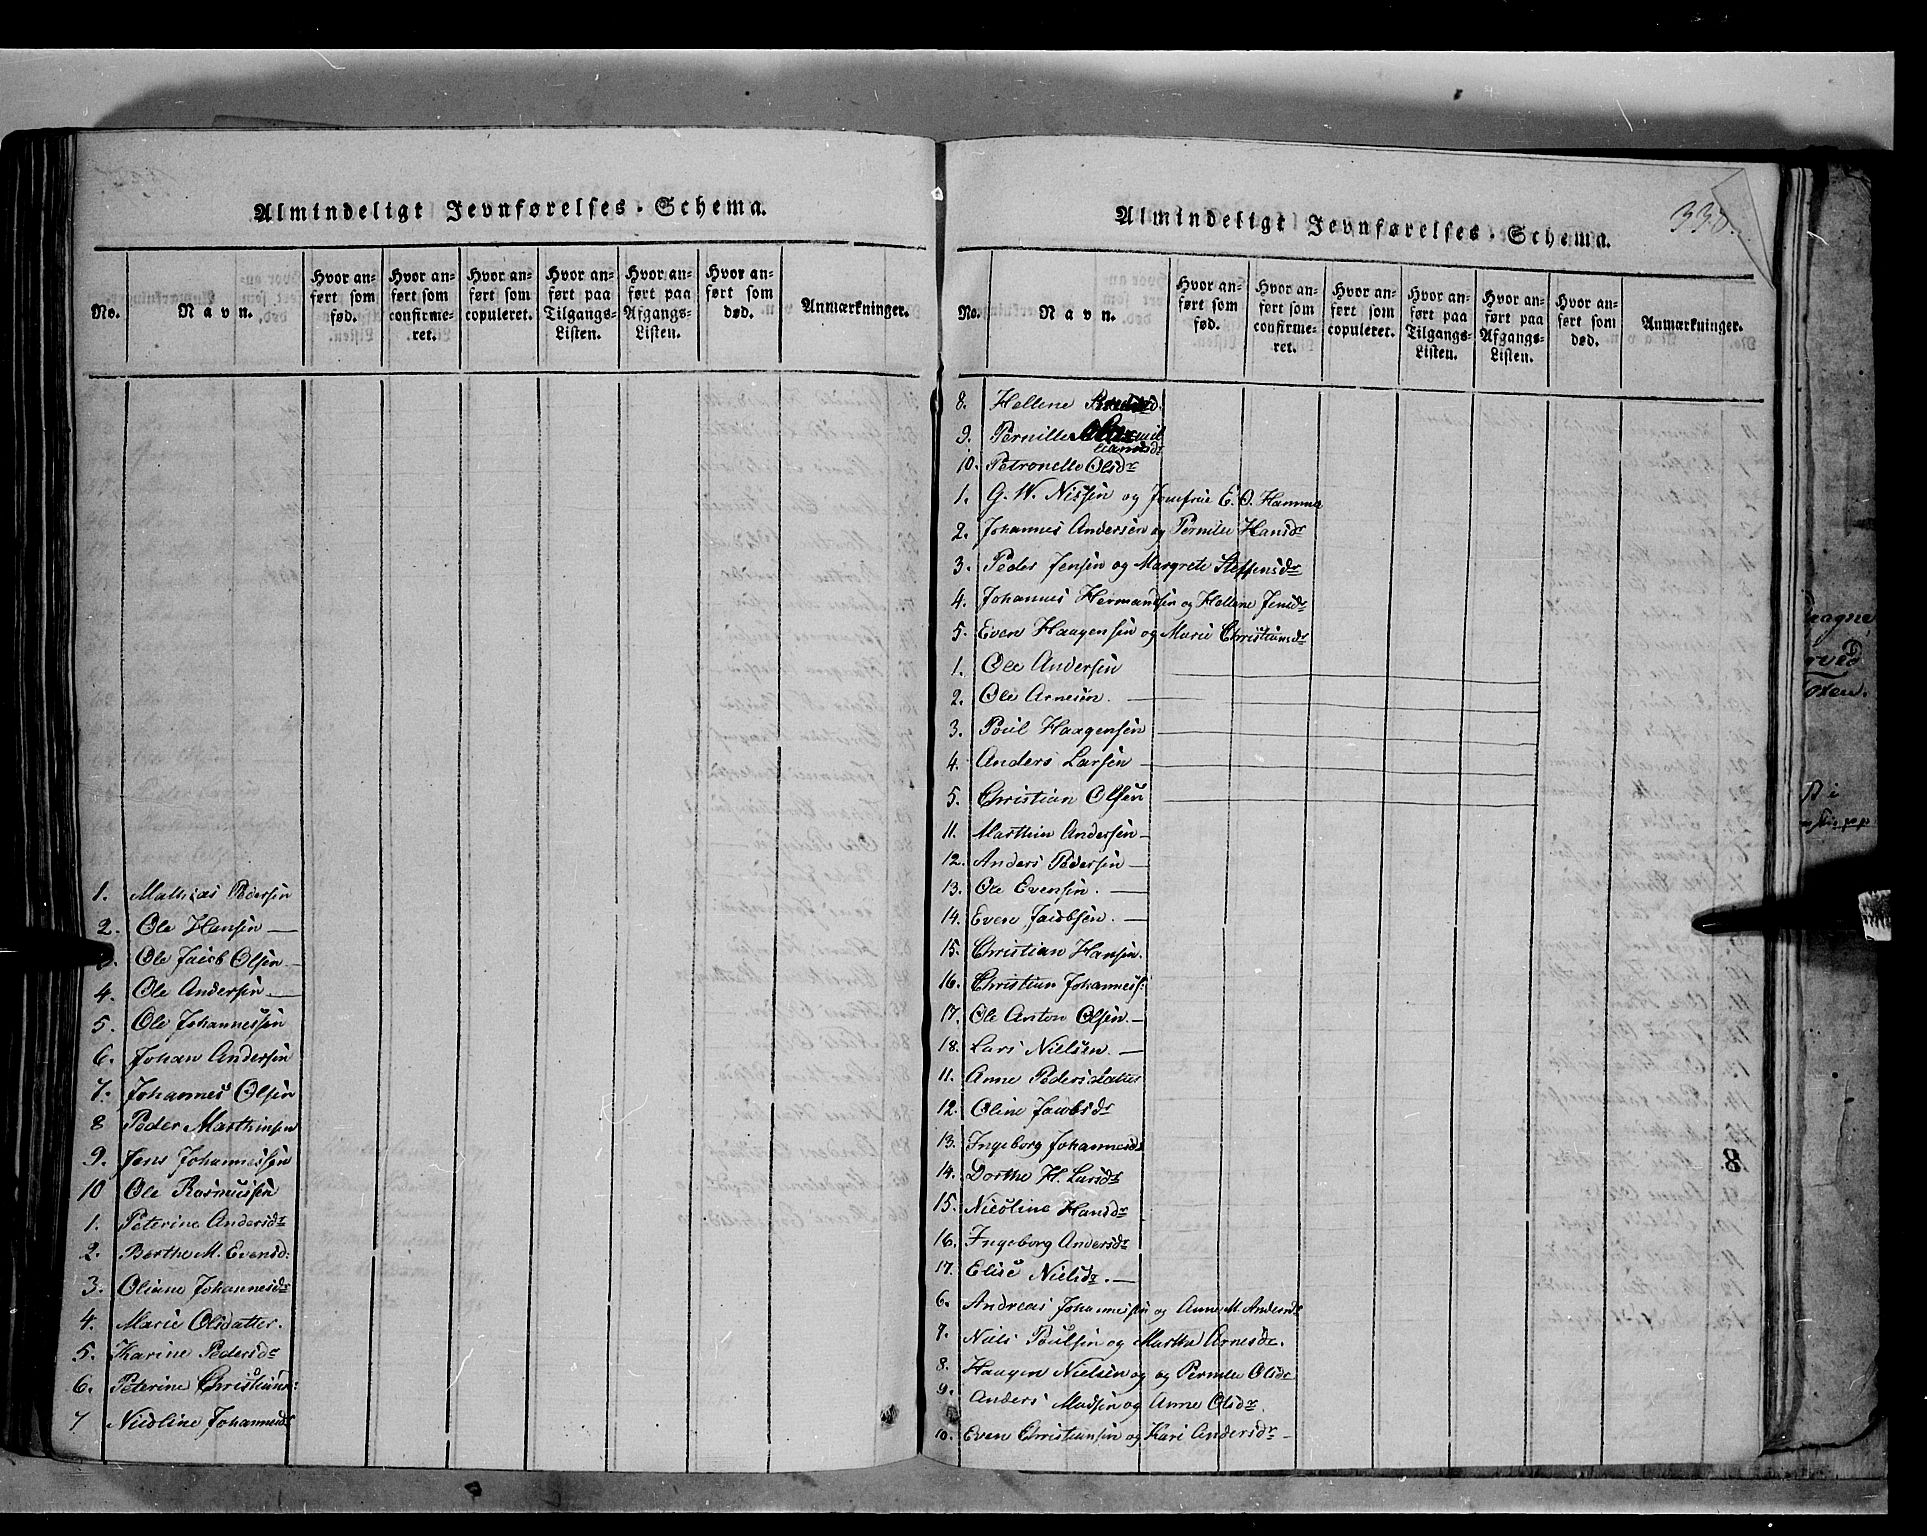 Almindeligt Jevnførelses-Schema.
No.
Navn.
Hvor anført som fød.
Hvor anført som confirmeret.
Hvor anført som copuleret.
Hvor anført paa Tilgangs-Listen.
Hvor anført paa Afgangs-Listen.
Hvor anført som død.
Anmærkninger.
1. Mathias Pedersen
2. Ole Hansen —
Ole Jacob Olsen
4. Ole Andersen —
5. Ole Johannessen
6. Johan Andersen
7. Johannes Olsen
8 Peder Marthinsen
9. Jens Johannessen
10 Ole Rasmussen
1. Peterine Andersdr
2. Berthe M. Evensd:
3. Oliane Johannesdr
4. Marie Olsdatter.
5. Karine Pedersdr
6. Peterine Christians:
7 Nicoline Johannesdr
Almindeligt Jevnførelses-Schema.
338.
No.
Navn.
Hvor anført som fød.
Hvor anført som confirmeret.
Hvor anført som copuleret.
Hvor anført paa Tilgangs-Listen.
Hvor anført paa Afgangs-Listen.
Hvor anført som død.
Anmærkninger.
8. Hellene
9. Pernille
10. Petronelle Olsdr
1. G. W. Nissen og Jomfrue E. O. Hammer
2. Johannes Andersen og Pernille Hansdr
3. Peder Jensen og Margrete Steffensdr
4. Johannes Hermandsen og Hellene Jensdr
5. Even Haagensen og Marie Christiansdr
1. Ole Andersen
2. Ole Arnesen. —
3. Poul Haagensen
4. Anders Larsen —
5. Christian Olsen
11. Marthin Andersen —
12. Anders Pedersen —
13. Ole Evensen. —
14. Even Jacobsen. —
15. Christian Hansen.
16. Christian Johanness:
17. Ole Anton Olsen. —
18. Lars Nielsen. —
11. Anne Pedersdatter
12. Oline Jacobsdr
13. Ingeborg Johannesdr
14. Dorthe H. Larsdr
15. Nicoline Hansdr
16. Ingeborg Andersdr
17. Elise Nielsdr. —
6. Andreas Johannessen og Anne M. Andersdr
7. Niels Poulsen og Marthe Arnesdr.
8. Haagen Nielsen og og Pernille Olsdr
9. Anders Madsen og Anne Olsdr.
10. Even Christiansen og Kari Andersdr —
8.